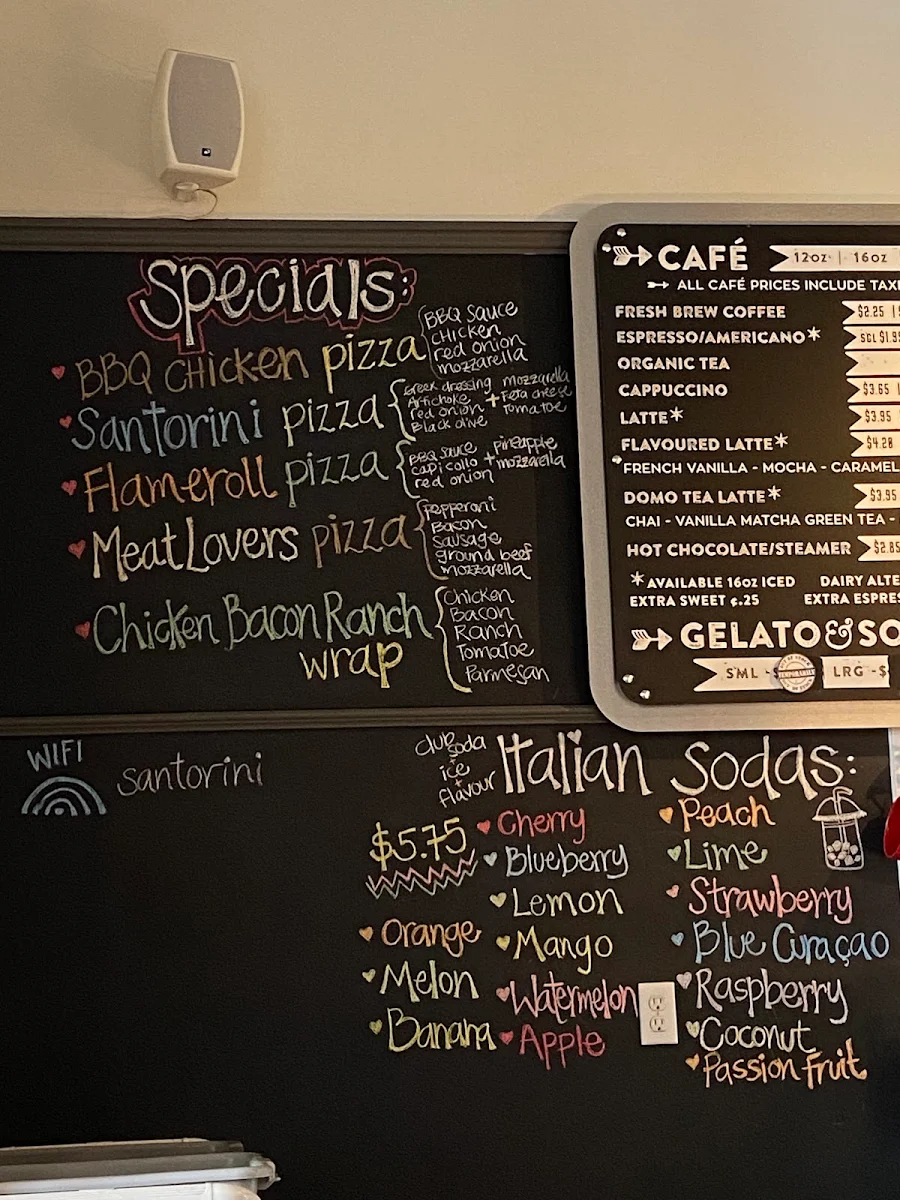 Specials:
BBQ Chicken pizza
BBQ Sauce
chicken
red onion
mozzarella
Santorini pizza
Greek dressing
Artichoke
red onion
Black olive
+
mozzarella
Feta cheese
Tomatoe
Flameroll pizza
BBQ sauce
capicollo
red onion
+
pineapple
mozzarella
MeatLovers pizza
Pepperoni
Bacon
Sausage
ground beef
mozzarella
Chicken Bacon Ranch
wrap
Chicken
Bacon
Ranch
Tomatoe
Parmesan
CAFÉ
12oz | 16oz
ALL CAFÉ PRICES INCLUDE
FRESH BREW COFFEE $2.25
ESPRESSO/AMERICANO* SGL
ORGANIC TEA
CAPPUCCINO $3.65
LATTE* $3.95
FLAVOURED LATTE* $4.28
FRENCH VANILLA - MOCHA - CARAMEL
DOMO TEA LATTE* $3.95
CHAI - VANILLA MATCHA GREEN TEA -
HOT CHOCOLATE/STEAMER $2.85
*AVAILABLE 16oz ICED DAIRY
EXTRA SWEET ¢.25 EXTRA
GELATO &
SML - TEMPORARILY LRG -$
WIFI
santorini
club soda
ice
+
flavour
Italian Sodas:
$5.75
Orange
Melon
Banana
Cherry
Blueberry
Lemon
Mango
Watermelon
Apple
Peach
Lime
Strawberry
Blue Curaçao
Raspberry
Coconut
Passion fruit